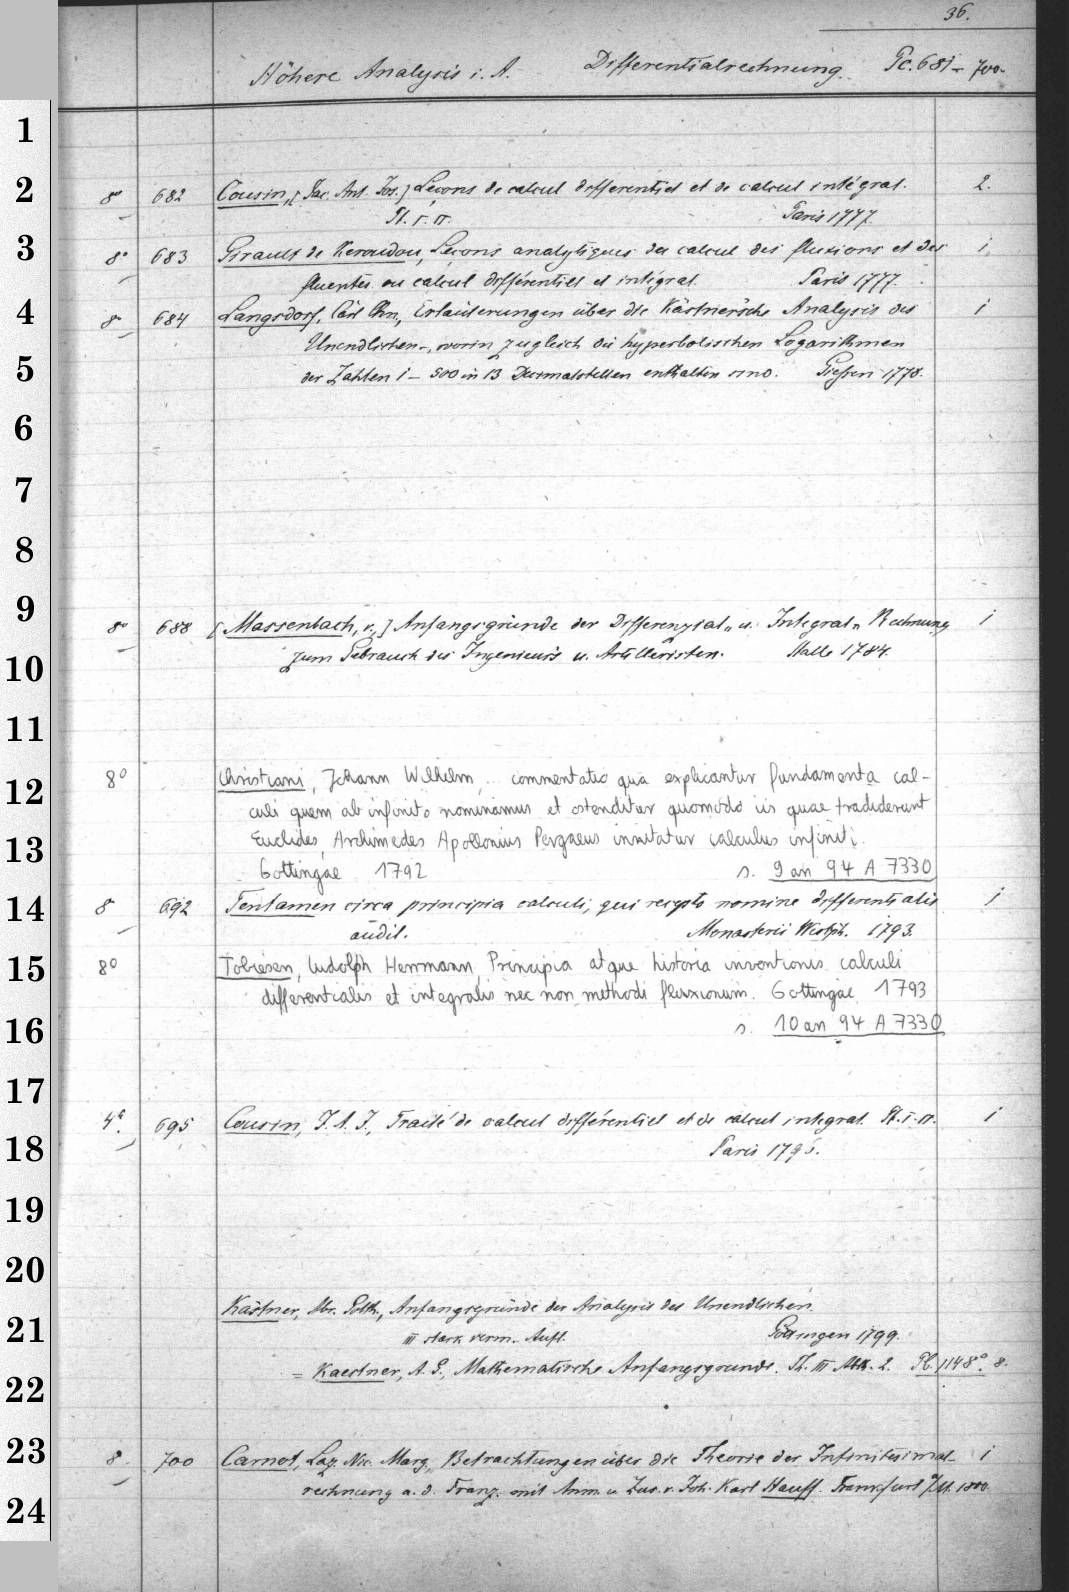 36.
Höhere Analysis i. A. Differentialrechnung. Pc. 681 – 700.
1
2 8° 682 Cousin, [Jac. Ant. Jos.] Leçons de calcul differentiel et de calcul intégral. 2.
Pt. I. II. Paris 1777.
3 8° 683 Girault de Keroudou, Leçons analytiques du calcul des fluxions et des 1
fluentes ou calcul différentiel et intégral. Paris 1777.
4 8° 684 Langsdorf, Carl Chn., Erläuterungen über die Kästnersche Analysis des 1
Unendlichen, worin zugleich die hyperbolischen Logarithmen
5 der Zahlen 1 – 500 in 13 Decimalstellen enthalten sind. Giessen 1778.
6
7
8
9 8° 688 [Massenbach, v.,] Anfangsgründe der Differenzial- u. Integral- Rechnung 1
10 zum Gebrauch des Ingenieurs u. Artilleristen. Halle 1784.
11
12 8° Christiani, Johann Wilhelm, commentatio qua explicantur fundamenta cal-
culi quem ab infinito nominamus et ostenditur quomodo iis quae tradiderunt
13 Euclides, Archimedes Apollonius Pergaeus innitatur calculus infiniti.
Gottingae 1792 s. 9 an 94 A 7330
14 8° 692 Tentamen circa principia calculi, qui recepto nomine differentialis 1
audit. Monasterii Westph. 1793.
15 8° Tobiesen, Ludolph Herrmann, Principia atque historia inventionis calculi
differentialis et integralis nec non methodi fluxionum. Gottingae 1793
16 s. 10 an 94 A 7330
17
4° 695 Cousin, J. A. J., Traité de calcul différentiel et de calcul integral. Pt. I. II. 1
18 Paris 1796.
19
20
Kästner, Abr. Gotth., Anfangsgründe der Analysis des Unendlichen.
21 III stark verm. Aufl. Göttingen 1799.
= Kaestner, A. G., Mathematische Anfangsgründe. Th. III Abth. 2. Pb 1148° 8.
22
23 8° 700 Carnot, Laz. Nic. Marg., Betrachtungen über die Theorie der Infinitesimal- 1
rechnung a. d. Franz. mit Anm. u. Zus. v. Joh. Karl Hauff. Frankfurt a/M. 1800.
24